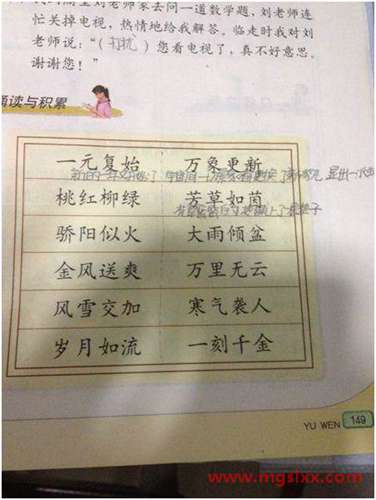 忙关掉电视，热情地给我解答。临走时我对刘
老师说：“（打扰）您看电视了，真不好意思。
谢谢您！”
诵读与积累
一元复始 万象更新
桃红柳绿 芳草如茵
骄阳似火 大雨倾盆
金风送爽 万里无云
风雪交加 寒气袭人
岁月如流 一刻千金
YU WEN 149
www.mgslxx.com